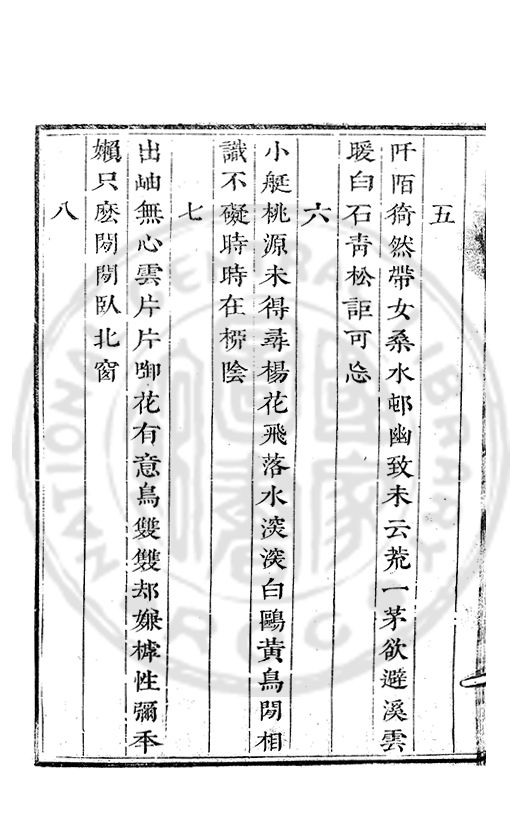 五
阡陌猗然帶女桑水邨幽致未云荒一茅欲避溪雲
暖白石青松詎可忘
六
小艇桃源未得尋楊花飛落水深深白鷗黃鳥閒相
識不礙時時在桞陰
七
出岫無心雲片片啣花有意鳥雙雙却嫌樗性彌年
嬾只應閒閒臥北窗
八
NATIONAL CENTRAL LIBRARY